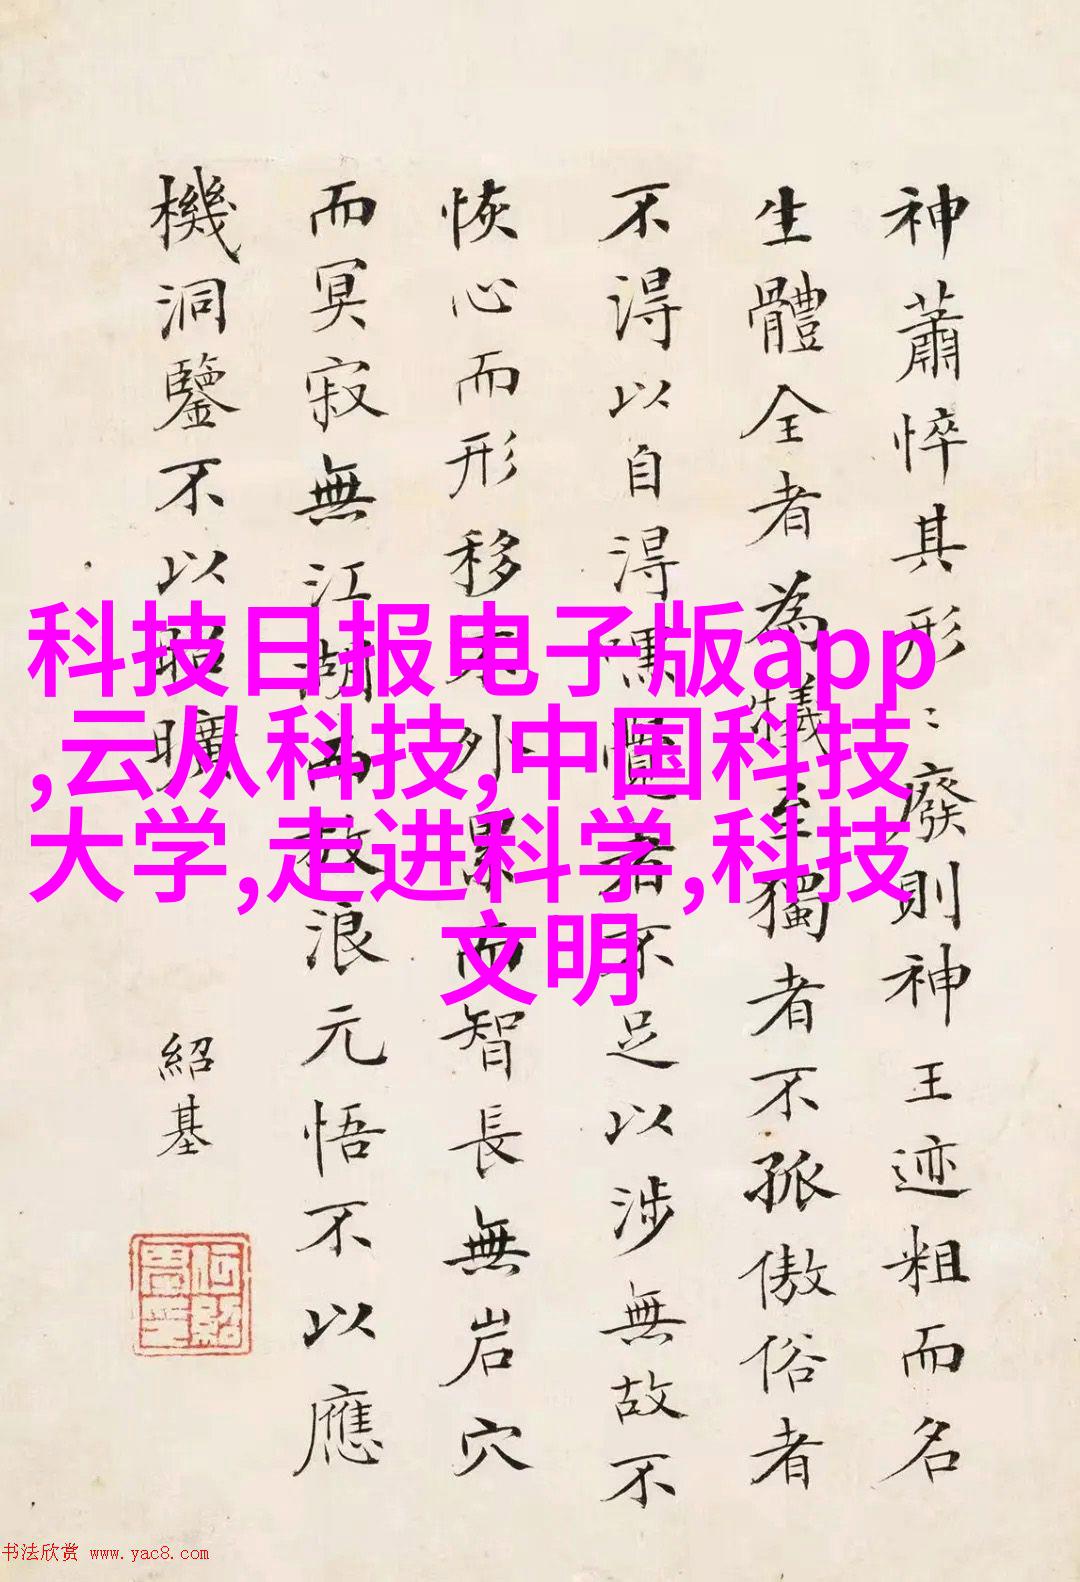 神蕭悴其形〻廢則神王迹粗而名
生體全者為犧至獨者不孤傲俗者
不得以自得者不足以涉無故不
恢心而形移不外累而智長無岩穴
而冥寂無江湖而放浪元悟不以應
機洞鑒不以昭曠
紹基
何紹基印
科技日报电子版app
,云从科技,中国科技
大学,走进科学,科技
文明
书法欣赏 www.yac8.com